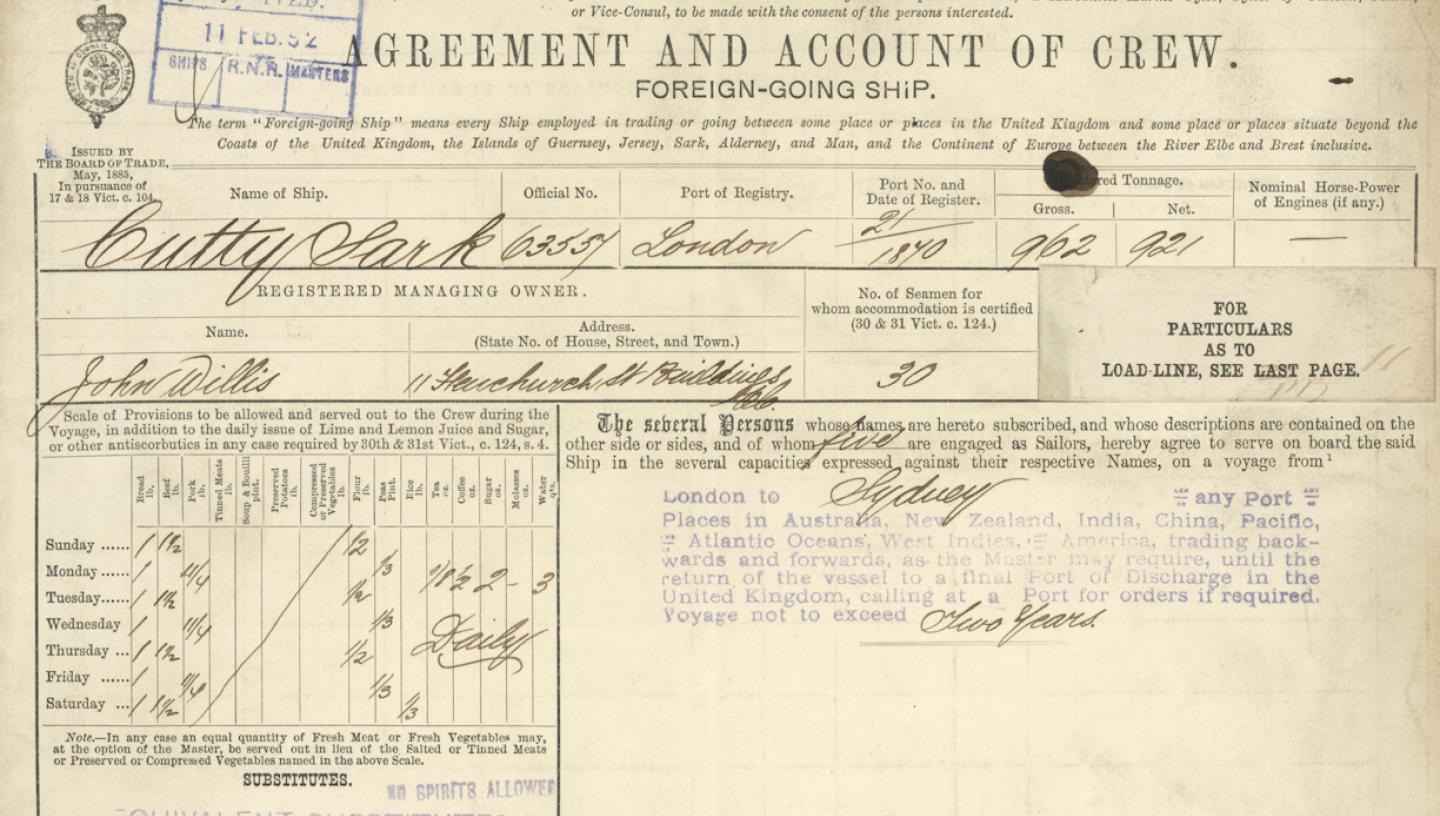 or Vice-Consul, to be made with the consent of the persons interested.
11 FEB. 92
SHIPS R.N.R. MASTERS
AGREEMENT AND ACCOUNT OF CREW.
FOREIGN-GOING SHIP.
The term "Foreign-going Ship" means every Ship employed in trading or going between some place or places in the United Kingdom and some place or places situate beyond the
Coasts of the United Kingdom, the Islands of Guernsey, Jersey, Sark, Alderney, and Man, and the Continent of Europe between the River Elbe and Brest inclusive.
ISSUED BY
THE BOARD OF TRADE,
May, 1885,
In pursuance of
17 & 18 Vict. c. 104.
Name of Ship. Official No. Port of Registry. Port No. and Date of Register. Tonnage. Gross. Net. Nominal Horse-Power of Engines (if any.)
Cutty Sark 63557 London 21/1870 962 921 —
REGISTERED MANAGING OWNER.
Name. Address. (State No. of House, Street, and Town.) No. of Seamen for whom accommodation is certified (30 & 31 Vict. c. 124.)
John Willis 11 Fenchurch St Buildings 30
FOR
PARTICULARS
AS TO
LOAD-LINE, SEE LAST PAGE.
11
Scale of Provisions to be allowed and served out to the Crew during the
Voyage, in addition to the daily issue of Lime and Lemon Juice and Sugar,
or other antiscorbutics in any case required by 30th & 31st Vict., c. 124, s. 4.
Bread lb. Beef lb. Pork lb. Tinned Meats lb. Soup & Bouilli pint. Preserved Potatoes lb. Compressed or Preserved Vegetables lb. Flour lb. Peas Pint. Rice lb. Tea oz. Coffee oz. Sugar oz. Molasses oz. Water qts.
Sunday ...... 1 1½ 1/2
Monday ...... 1 1¼ 1/3 1/8 ½ 2 - 3
Tuesday ...... 1 1½ 1/2
Wednesday 1 1¼ 1/3 Daily
Thursday ...... 1 1½ 1/2
Friday ...... 1 1¼ 1/3
Saturday ... 1 1½ 1/3
Note.—In any case an equal quantity of Fresh Meat or Fresh Vegetables may,
at the option of the Master, be served out in lieu of the Salted or Tinned Meats
or Preserved or Compressed Vegetables named in the above Scale.
SUBSTITUTES.
NO SPIRITS ALLOWED
EQUIVALENT SUBSTITUTES
The several Persons whose names are hereto subscribed, and whose descriptions are contained on the
other side or sides, and of whom five are engaged as Sailors, hereby agree to serve on board the said
Ship in the several capacities expressed against their respective Names, on a voyage from¹
London to Sydney any Port
Places in Australia, New Zealand, India, China, Pacific,
Atlantic Oceans, West Indies, America, trading back-
wards and forwards, as the Master may require, until the
return of the vessel to a final Port of Discharge in the
United Kingdom, calling at a Port for orders if required.
Voyage not to exceed Two Years.